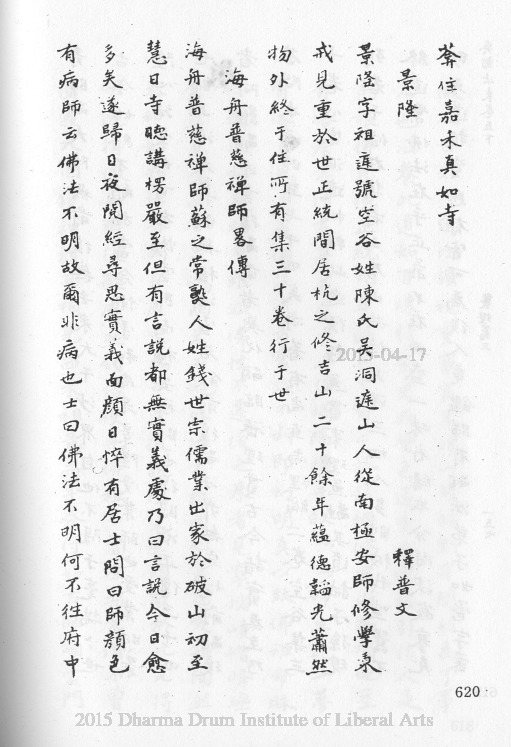 葬住嘉禾真如寺
景隆
釋普文
景隆字祖遲號空谷姓陳氏吳洞遲山人從南極安師修學稟
戒見重於世正統閒居杭之修吉山二十餘年蘊德韜光蕭然
物外終于住所有集三十卷行于世
海舟普慈禪師畧傳
海舟普慈禪師蘇之常熟人姓錢世宗儒業出家於破山初至
慧日寺聽講楞嚴至但有言說都無實義處乃曰言說今日愈
多矣遂歸日夜閱經尋思實義面顏日悴有居士問曰師顏色
有病師云佛法不明故爾非病也士曰佛法不明何不徃府中
620
2015-04-17
2015 Dharma Drum Institute of Liberal Arts